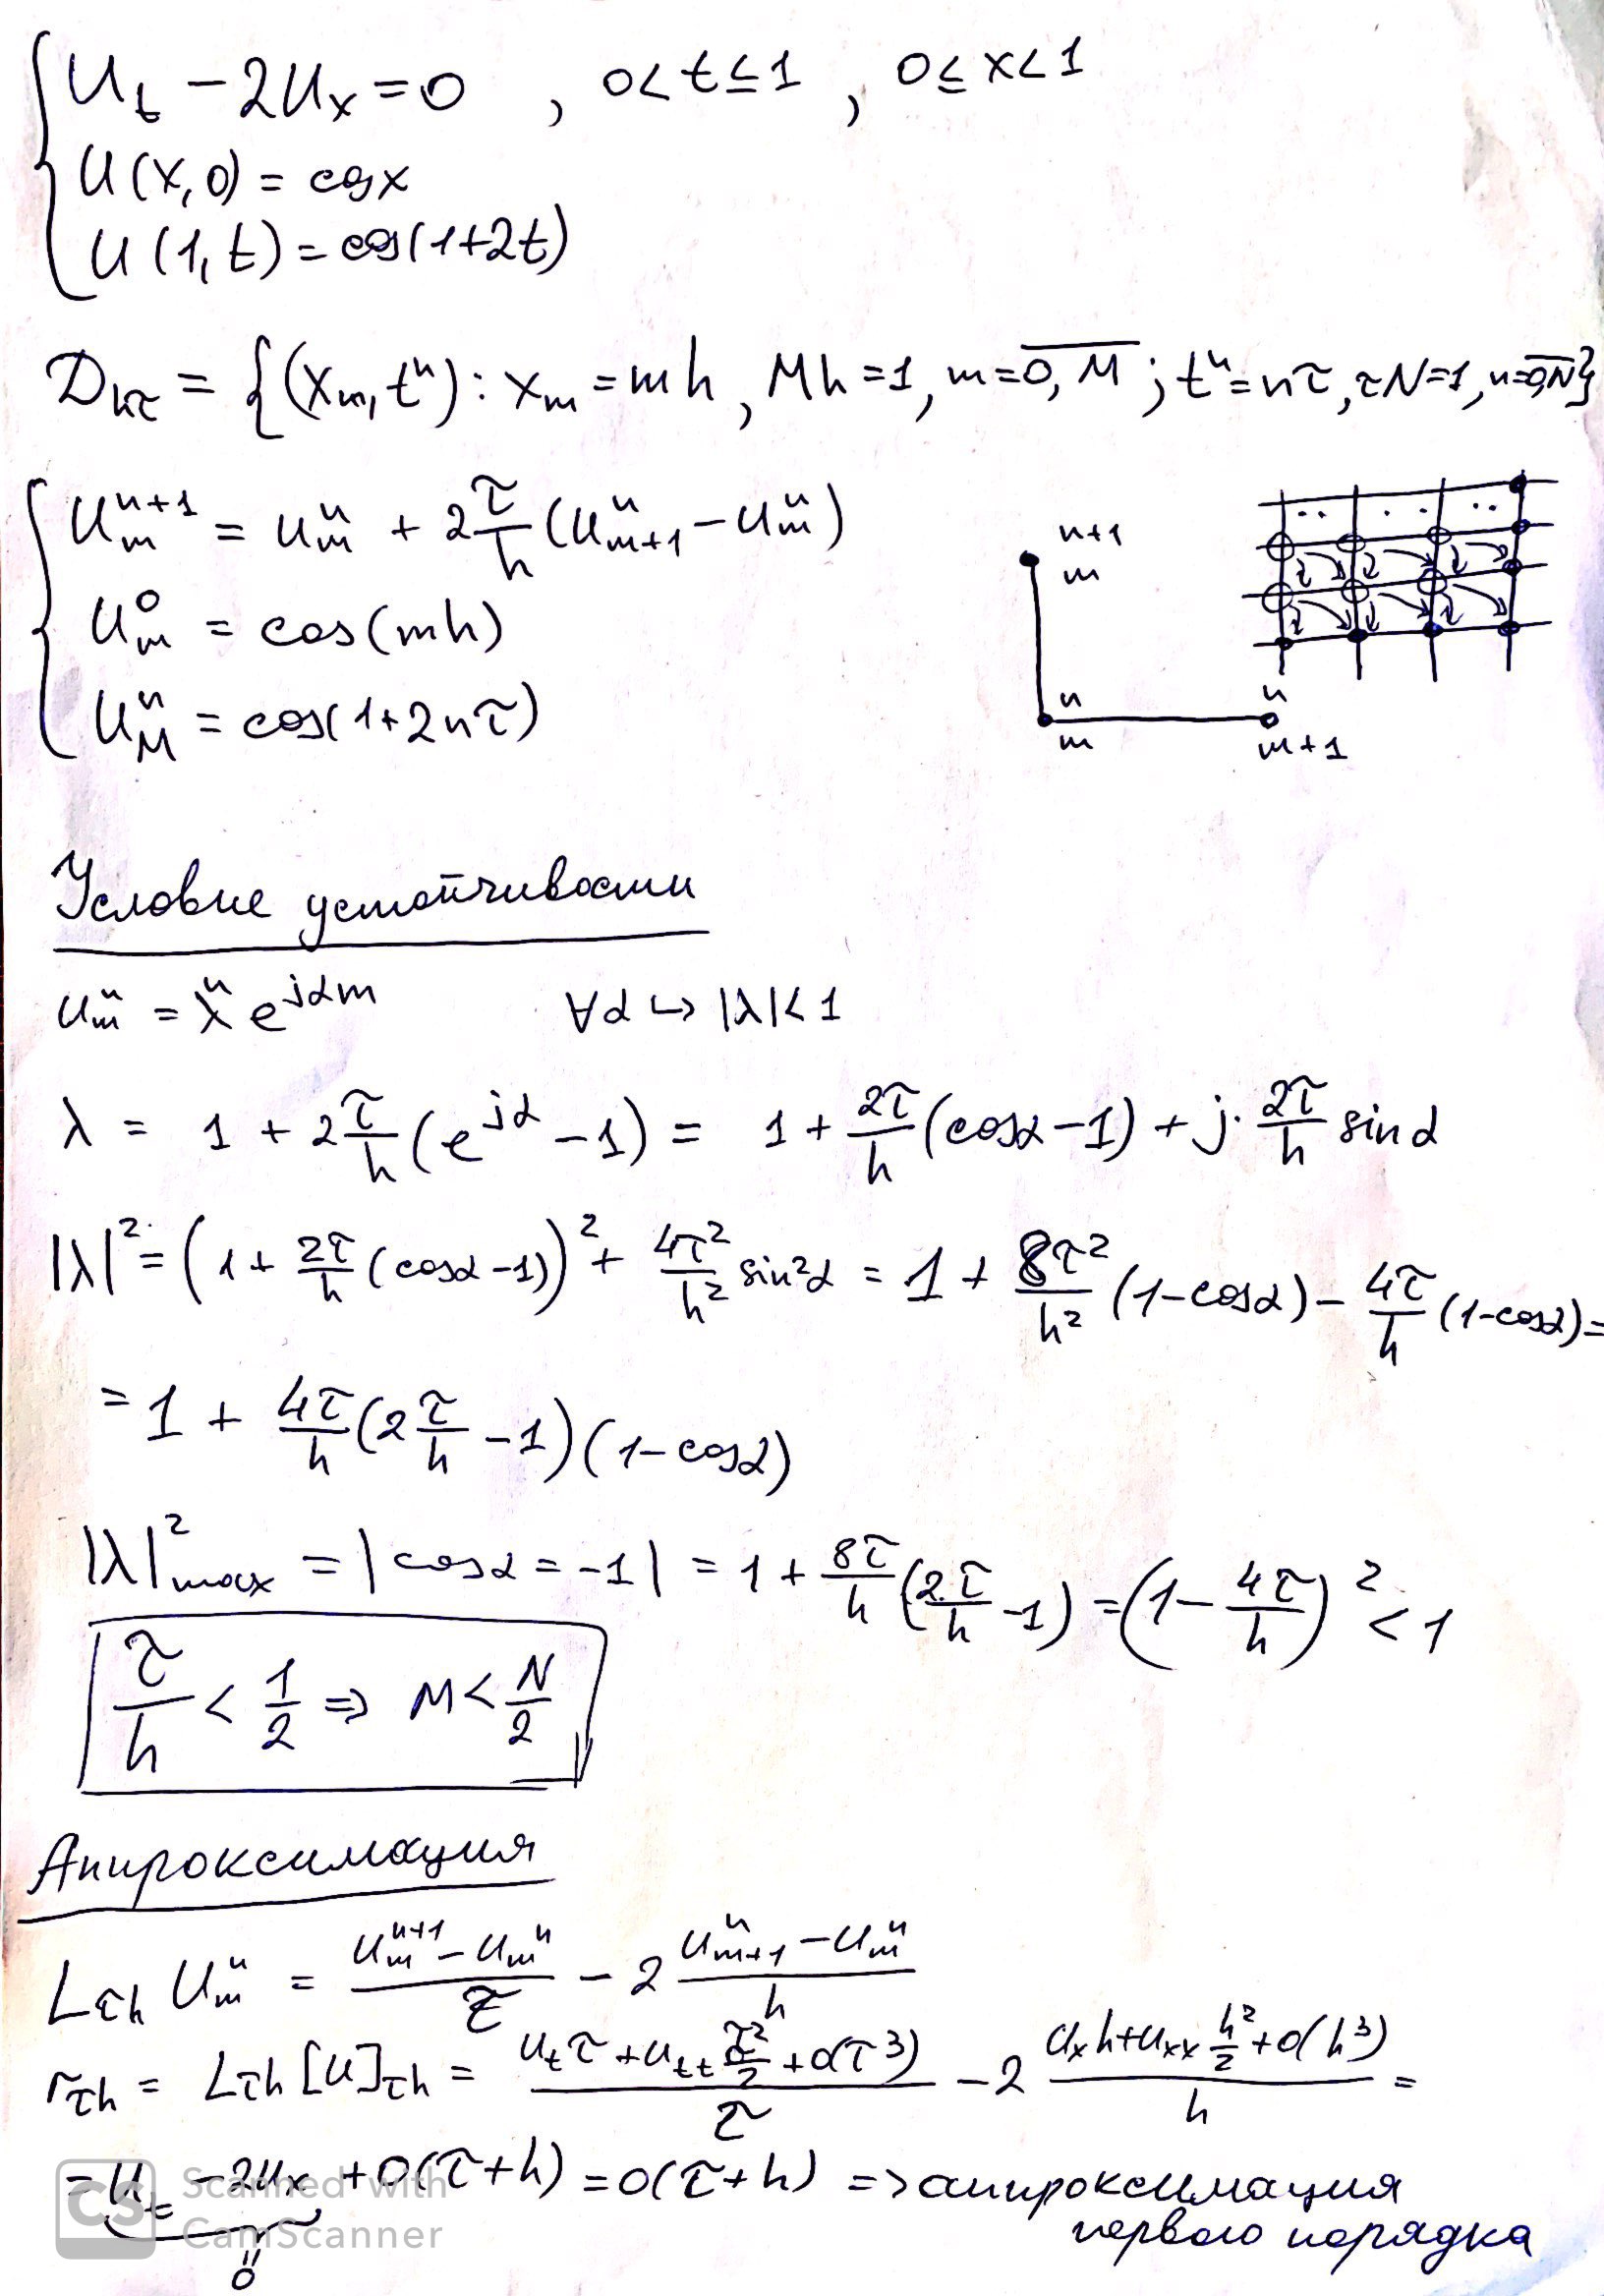 { U_t − 2U_x = 0 , 0 < t ≤ 1 , 0 ≤ x < 1
U(x,0) = cos x
U(1,t) = cos(1+2t)
D_{hτ} = {(x_m, t^n) : x_m = mh, Mh = 1, m = \overline{0,M} ; t^n = nτ, τN = 1, n = \overline{0,N}}
{ U_m^{n+1} = U_m^n + 2 τ/h (U_{m+1}^n − U_m^n)
U_m^0 = cos(mh)
U_M^n = cos(1+2nτ)
n+1
m
n
m
n
m+1
Условие устойчивости
U_m^n = λ^n e^{jαm} ∀α ↪ |λ| < 1
λ = 1 + 2 τ/h (e^{jα} − 1) = 1 + 2τ/h (cosα − 1) + j · 2τ/h sinα
|λ|^2 = (1 + 2τ/h (cosα − 1))^2 + 4τ^2/h^2 sin^2α = 1 + 8τ^2/h^2 (1 − cosα) − 4τ/h (1 − cosα) =
= 1 + 4τ/h (2 τ/h − 1)(1 − cosα)
|λ|^2_{max} = |cosα = −1| = 1 + 8τ/h (2τ/h − 1) = (1 − 4τ/h)^2 < 1
τ/h < 1/2 ⇒ M < N/2
Аппроксимация
L_{τh} U_m^n = (U_m^{n+1} − U_m^n)/τ − 2 (U_{m+1}^n − U_m^n)/h
r_{τh} = L_{τh}[U]_{τh} = (U_t τ + U_{tt} τ^2/2 + O(τ^3))/τ − 2 (U_x h + U_{xx} h^2/2 + O(h^3))/h =
= U_t − 2U_x + O(τ+h) = O(τ+h) => аппроксимация
первого порядка
0
CS Scanned with
CamScanner